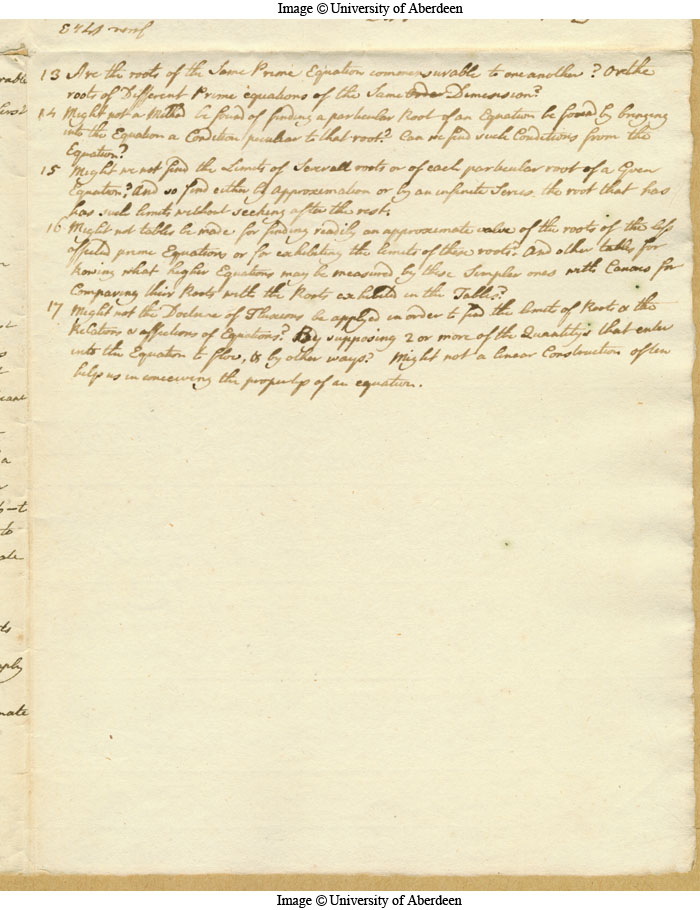 Image © University of Aberdeen
13 Are the roots of the Same Prime Equation commensurable to one another? Or the
roots of Different Prime equations of the Same Dimension?
14 Might not a Method be found of finding a particular Root of an Equation be found by bringing
into the Equation a Condition peculiar to that root? Can we find such Conditions from the
Equation?
15 Might we not find the Limits of Severall roots or of each particular root of a Given
Equation? And so find either by approximation or by an infinite Series the root that has
has such limits without seeking after the rest.
16 Might not tables be made for finding readily an approximate value of the roots of the less
affected prime Equations or for exhibiting the limits of these roots? And other tables for
knowing what higher Equations may be measured by these Simpler ones with Canons for
Comparing their Roots with the Roots exhibited in the Tables?
17 Might not the Doctrine of Fluxions be applyed in order to find the limits of Roots & the
Relations & affections of Equations? By supposing 2 or more of the Quantitys that enter
into the Equation to flow, & by other ways? Might not a linear Construction often
help us in conceiving the propertys of an equation.
Image © University of Aberdeen